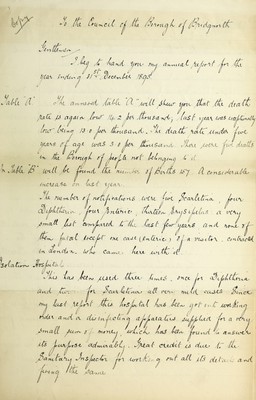 To the Council of the Borough of Bridgnorth
Gentlemen
I beg to hand you my annual report for the
year ending 31st December 1898.
Table "A" The annexed table "A" will show you that the death
rate is again low 14.2 per thousand, last year was unusually
low being 13.0 per thousand. The death rate under five
years of age was 3.0 per thousand. There were five deaths
in the Borough of people not belonging to it.
In Table "B" will be found the number of Births 157. A considerable
increase on last year.
The number of notifications were five Scarletina, four
Diphtheria, four Enteric, thirteen Erysipelas a very
small list compared to the last few years and none of them
fatal except one case (enteric) of a visitor, contracted
in London who came here with it.
Isolation Hospital
This has been used three times, once for Diphtheria
and two for Scarletina all very mild cases. Since
my last report this hospital has been got into working
order and a disinfecting apparatus supplied for a very
small sum of money, which has been found to answer
its purpose admirably. Great credit is due to the
Sanitary Inspector for working out all its details and
fixing the same